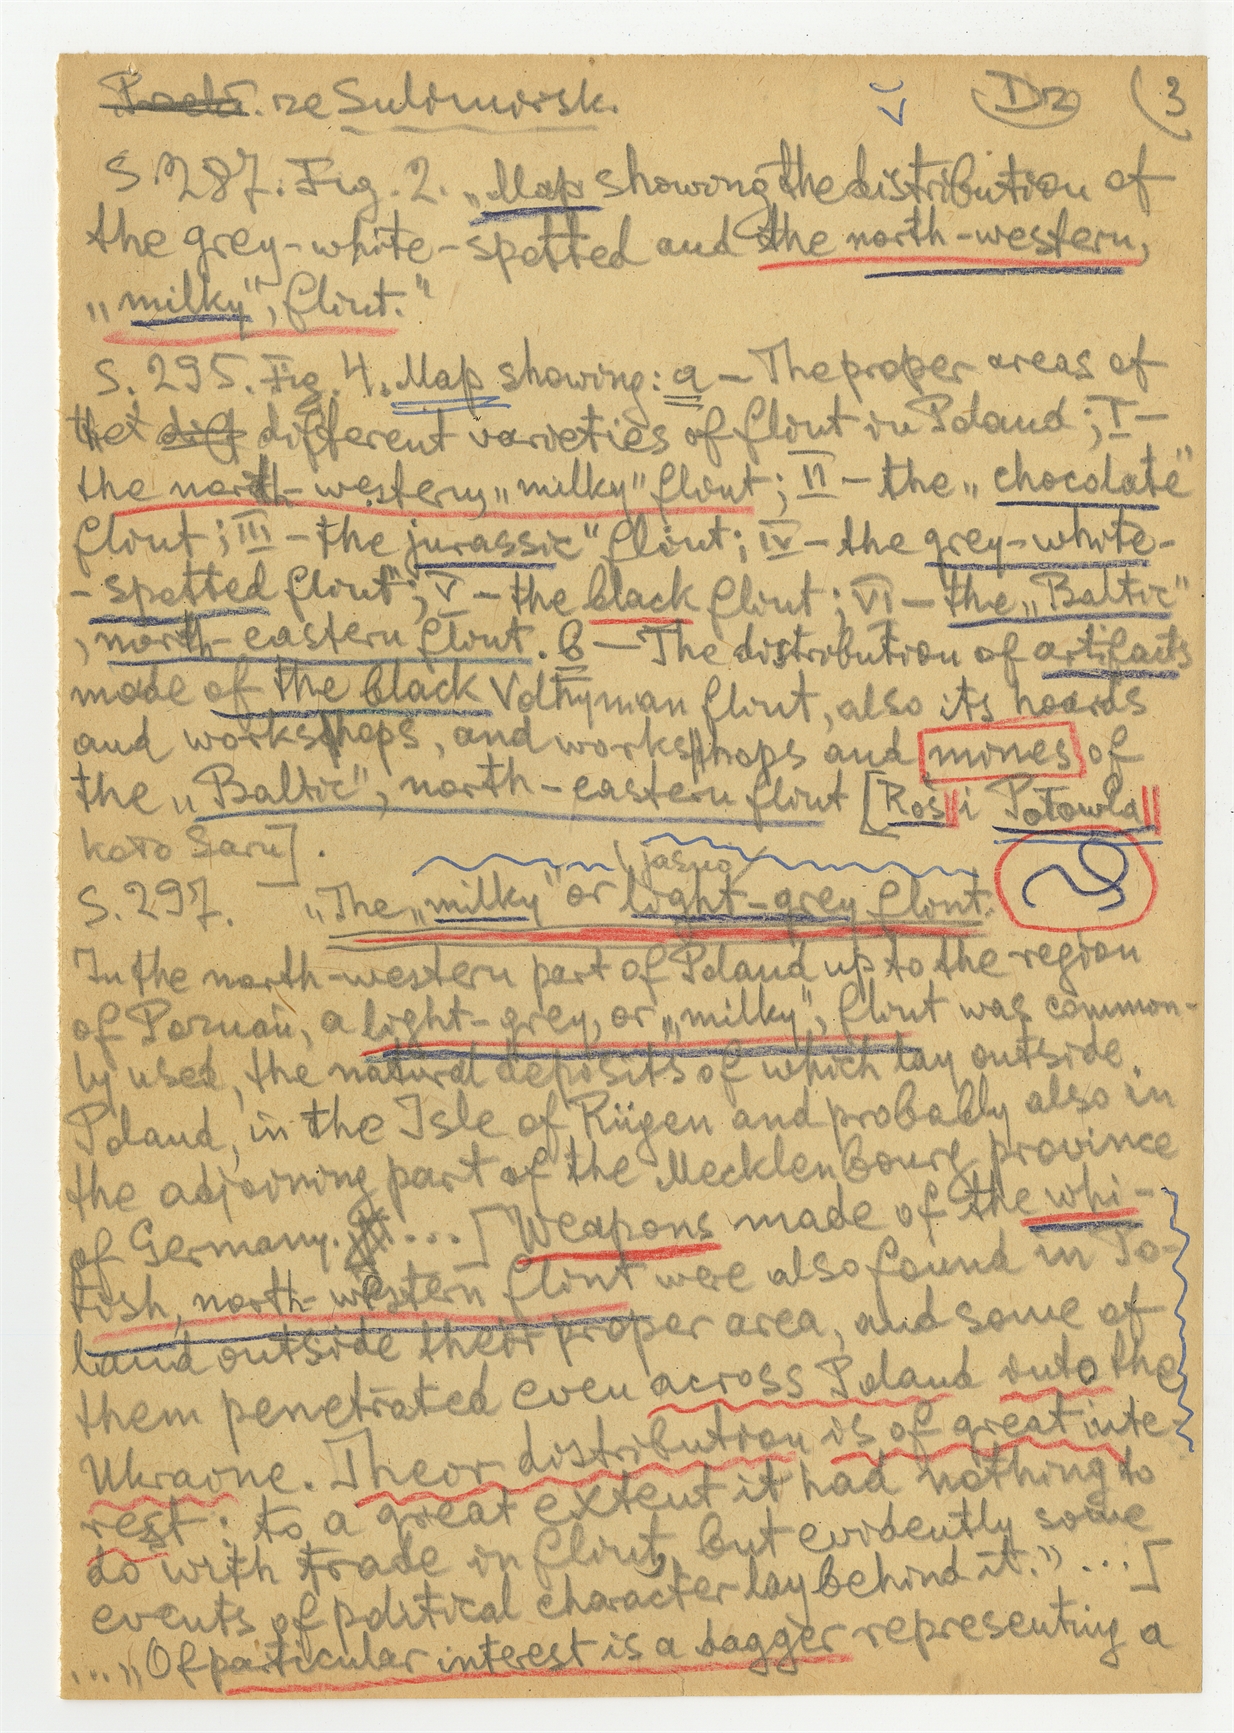 ze Sulimirsk. Dz (3
S. 287. Fig. 2. „Map showing the distribution of
the grey-white-spotted and the north-western,
„milky", flint."
S. 295. Fig. 4. Map showing: a – The proper areas of
the diff different varieties of flint in Poland; I –
the north-western, „milky" flint; II – the „chocolate"
flint; III – the jurassic" flint; IV – the grey-white-
-spotted flint"; V – the black flint; VI – the „Baltic"
, north-eastern flint. b – The distribution of artifacts
made of the black Volhynian flint, also its hoards
and workshops, and workshops and mines of
the „Baltic", north-eastern flint [Roś i Potowla
koło
(jasno)
S. 297. „The „milky" or light-grey flint.
In the north-western part of Poland up to the region
of Poznań, a light-grey, or „milky", flint was common-
ly used, the natural deposits of which lay outside
Poland, in the Isle of Rügen and probably also in
the adjoining part of the Mecklenbourg province
of Germany. ... [Weapons made of the whi-
tish, north-western flint were also found in Po-
land outside their proper area, and some of
them penetrated even across Poland into the
Ukraine. Their distribution is of great inte-
rest: to a great extent it had nothing to
do with trade in flint, but evidently some
events of political character lay behind it." ...]
... „Of particular interest is a dagger representing a